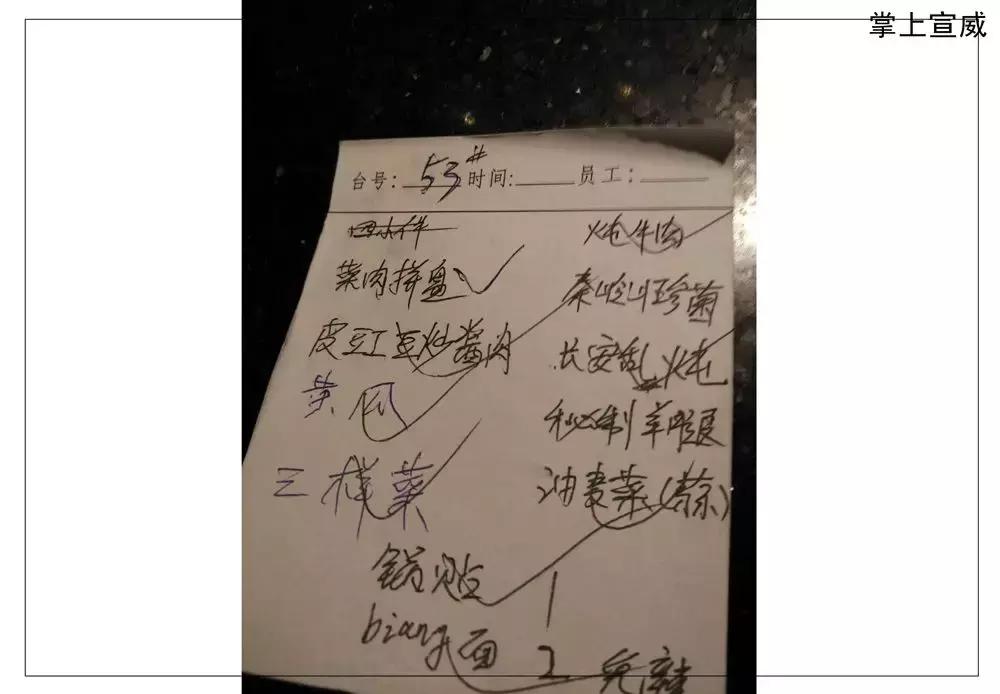 掌上宣威
台号: 53# 时间: 员工:
四小伴
菜肉拼盘
皮豇豆炒酱肉
黄瓜
三样菜
炖牛肉
秦岭山珍菌
长安乱炖
秘制羊腿
油麦菜(蒜)
锅贴 1
biang面 2 免辣